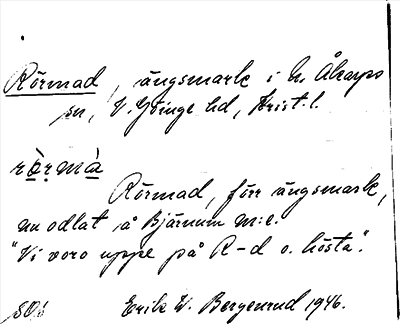 Rörmad, ängsmark i N. Åkarps
sn, V. Göinge hd, Krist. l.
rö̀rmà
Rörmad, förr ängsmark,
nu odlat å Bjärnum m:e.
"Vi voro uppe på R-d o. hösta".
Erik W. Bergenrud 1946.